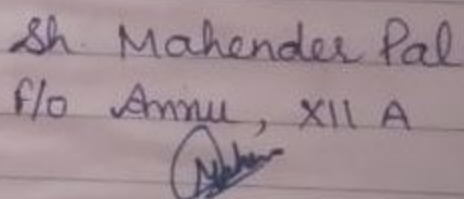 Sh. Mahender Pal
f/o Annu, XII A